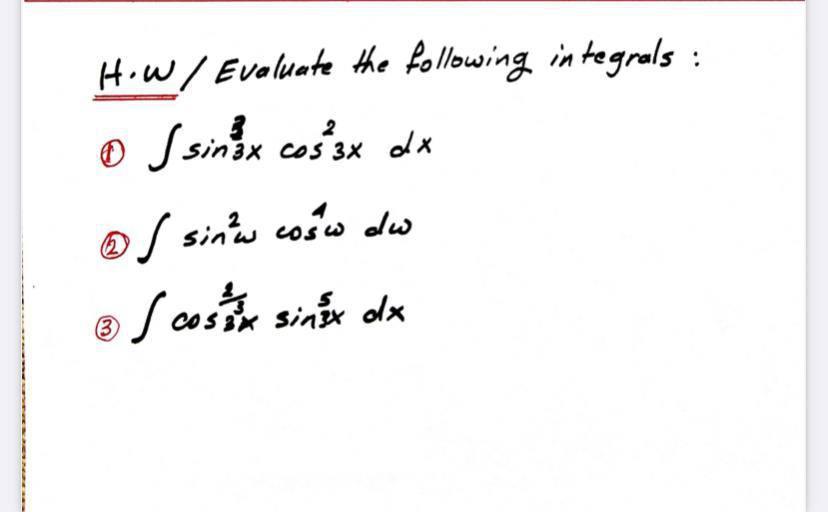 H.W / Evaluate the following integrals :
① ∫ sin³3x cos²3x dx
② ∫ sin²w cos⁴w dw
③ ∫ cos^(2/3)3x sin⁵3x dx